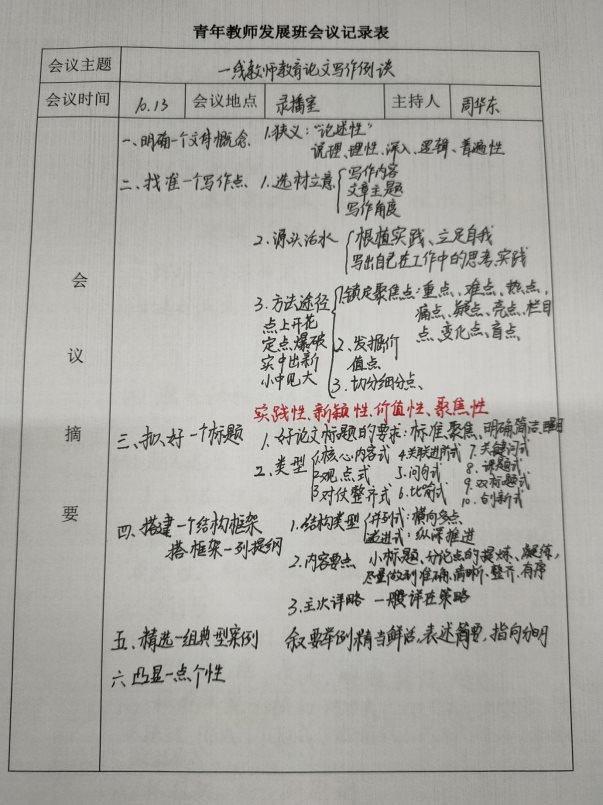 青年教师发展班会议记录表
会议主题 一线教师教育论文写作例谈
会议时间 10.13 会议地点 录播室 主持人 周华东
会议摘要
一、明确一个文体概念 1.狭义:"论述性"
说理、理性、深入、逻辑、普遍性
二、找准一个写作点 1.选材立意 写作内容
文章主题
写作角度
2.源头活水 根植实践、立足自我
写出自己在工作中的思考、实践
3.方法途径 1.锁定聚焦点:重点、难点、热点、
点上开花 痛点、疑点、亮点、栏目
定点爆破 点、变化点、盲点
实中出新 2.发掘价
小中见大 值点
3.切分细分点、
实践性、新颖性、价值性、聚焦性
三、拟好一个标题 1.好论文标题的要求:标准、聚焦、明确、简洁、醒目
2.类型 1.核心内容式 4.关联递进式 7.关键词式
2.观点式 5.问句式 8.课题式
3.对仗整齐式 6.比喻式 9.双标题式
10.创新式
四、搭建一个结构框架 1.结构类型 并列式:横向多点
搭框架—列提纲 递进式:纵深推进
2.内容要点 小标题、分论点的提炼、凝练,
尽量做到准确、清晰、整齐、有序
3.主次详略 一般详在策略
五、精选一组典型案例 叙要举例精当鲜活,表述简要,指向分明
六、凸显一点个性